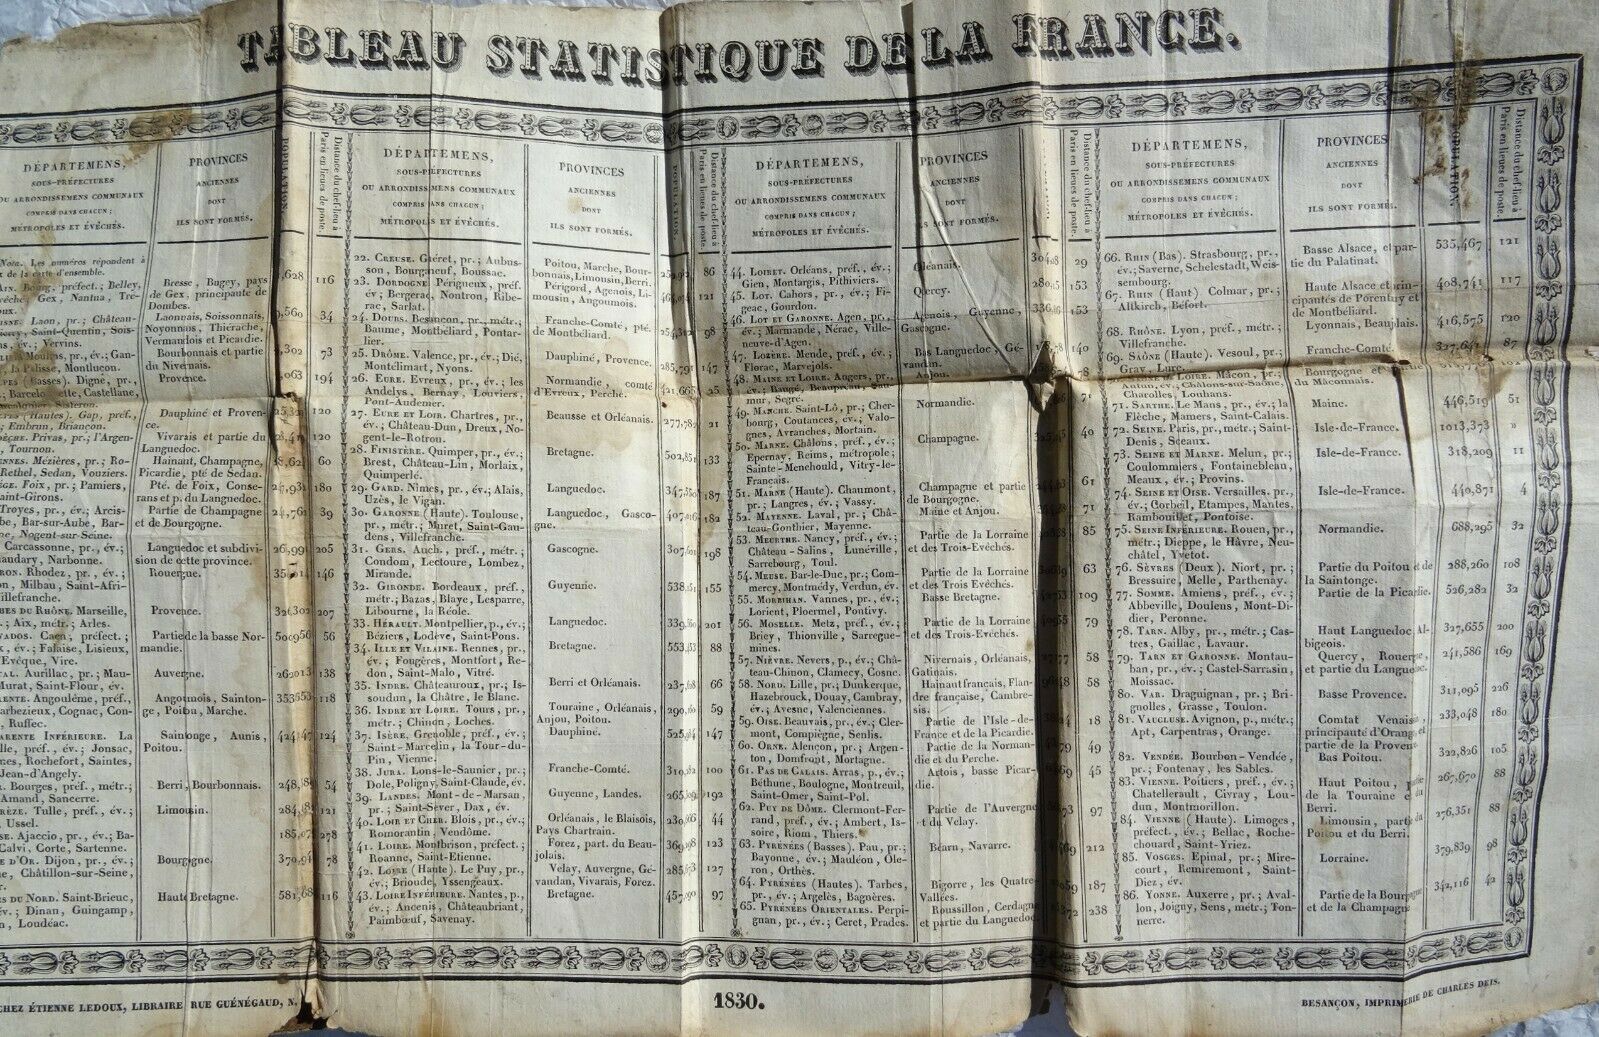 TABLEAU STATISTIQUE DE LA FRANCE.
DÉPARTEMENS,
SOUS-PRÉFECTURES
OU ARRONDISSEMENS COMMUNAUX
COMPRIS DANS CHACUN;
MÉTROPOLES ET ÉVÊCHÉS.
PROVINCES
ANCIENNES
DONT
ILS SONT FORMÉS.
POPULATION
Distance du chef-lieu à
Paris en lieues de poste.
Nota. Les numéros répondent à
x de la carte d'ensemble.
Bourg, préfect.; Belley,
Gex, Nantua, Tré-
Bresse, Bugey, pays
de Gex, principauté de
Dombes.
116
Laon, pr.; Château-
Saint-Quentin, Sois-
év.; Vervins.
Laonnais, Soissonnais,
Noyonnais, Thiérache,
Vermandois et Picardie.
34
Moulins, pr., év.; Gan-
la Palisse, Montluçon.
Bourbonnais et partie
du Nivernais.
73
(Basses). Digne, pr.,
Barcelonnette, Castellane,
Provence.
194
(Hautes). Gap, préf.,
Embrun, Briançon.
Dauphiné et Proven-
ce.
120
Privas, pr.; l'Argen-
Tournon.
Vivarais et partie du
Languedoc.
120
Mézières, pr.; Ro-
Rethel, Sedan, Vouziers.
Hainaut, Champagne,
Picardie, pté de Sedan.
60
Foix, pr.; Pamiers,
Saint-Girons.
Pté. de Foix, Conse-
rans et p. du Languedoc.
180
Troyes, pr., év.; Arcis-
Bar-sur-Aube, Bar-
Nogent-sur-Seine.
Partie de Champagne
et de Bourgogne.
39
Carcassonne, pr., év.;
Narbonne.
Languedoc et subdivi-
sion de cette province.
205
Rhodez, pr., év.;
Milhau, Saint-Afri-
Villefranche.
Rouergue.
146
DU RHÔNE. Marseille,
Aix, métr.; Arles.
Provence.
207
Caen, préfect.;
év.; Falaise, Lisieux,
Vire.
Partie de la basse Nor-
mandie.
56
Aurillac, pr.; Mau-
Murat, Saint-Flour, év.
Auvergne.
262013
138
Angoulême, préf.,
Barbezieux, Cognac, Con-
Ruffec.
Angoumois, Sainton-
ge, Poitou, Marche.
353653
118
INFÉRIEURE. La
préf., év.; Jonsac,
Rochefort, Saintes,
Saintonge, Aunis,
Poitou.
124
Bourges, préf., métr.;
Amand, Sancerre.
Berri, Bourbonnais.
54
Tulle, préf., év.;
Ussel.
Limousin.
121
Ajaccio, pr., év.; Ba-
Calvi, Corte, Sartenne.
278
D'OR. Dijon, pr., év.;
Châtillon-sur-Seine,
Bourgogne.
78
DU NORD. Saint-Brieuc,
év.; Dinan, Guingamp,
Loudéac.
Haute Bretagne.
116
DÉPARTEMENS,
SOUS-PRÉFECTURES
OU ARRONDISSEMENS COMMUNAUX
COMPRIS DANS CHACUN;
MÉTROPOLES ET ÉVÊCHÉS.
PROVINCES
ANCIENNES
DONT
ILS SONT FORMÉS.
POPULATION
Distance du chef-lieu à
Paris en lieues de poste.
22. CREUSE. Guéret, pr.; Aubus-
son, Bourganeuf, Boussac.
Poitou, Marche, Bour-
bonnais, Limousin, Berri.
86
23. DORDOGNE. Périgueux, préf.
év; Bergerac, Nontron, Ribe-
rac, Sarlat.
Périgord, Agenois, Li-
mousin, Angoumois.
121
24. DOUBS. Besançon, pr., métr.;
Baume, Montbéliard, Pontar-
lier.
Franche-Comté, pté.
de Montbéliard.
98
25. DRÔME. Valence, pr., év.; Dié,
Montélimart, Nyons.
Dauphiné, Provence.
285,791
147
26. EURE. Evreux, pr., év.; les
Andelys, Bernay, Louviers,
Pont-Audemer.
Normandie, comté
d'Evreux, Perche.
421,665
25
27. EURE ET LOIR. Chartres, pr.,
év.; Château-Dun, Dreux, No-
gent-le-Rotrou.
Beausse et Orléanais.
277,782
21
28. FINISTÈRE. Quimper, pr., év.;
Brest, Château-Lin, Morlaix,
Quimperlé.
Bretagne.
502,851
133
29. GARD. Nîmes, pr., év.; Alais,
Uzès, le Vigan.
Languedoc.
347,550
187
30. GARONNE (Haute). Toulouse,
pr., métr.; Muret, Saint-Gau-
dens, Villefranche.
Languedoc, Gasco-
gne.
407,016
182
31. GERS. Auch., préf., métr.;
Condom, Lectoure, Lombez,
Mirande.
Gascogne.
307,601
198
32. GIRONDE. Bordeaux, préf.,
métr.; Bazas, Blaye, Lesparre,
Libourne, la Réole.
Guyenne.
538,151
155
33. HÉRAULT. Montpellier, p., év.;
Béziers, Lodève, Saint-Pons.
Languedoc.
201
34. ILLE ET VILAINE. Rennes, pr.,
év.; Fougères, Montfort, Re-
don, Saint-Malo, Vitré.
Bretagne.
553,453
88
35. INDRE. Châteauroux, pr.; Is-
soudun, la Châtre, le Blanc.
Berri et Orléanais.
66
36. INDRE ET LOIRE. Tours, pr.,
métr.; Chinon, Loches.
Touraine, Orléanais,
Anjou, Poitou.
59
37. ISÈRE. Grenoble, préf., év.;
Saint-Marcelin, la Tour-du-
Pin, Vienne.
Dauphiné.
147
38. JURA. Lons-le-Saunier, pr.;
Dole, Poligny, Saint-Claude, év.
Franche-Comté.
100
39. LANDES. Mont-de-Marsan,
pr.; Saint-Sever, Dax, év.
Guyenne, Landes.
192
40. LOIR ET CHER. Blois, pr., év.;
Romorantin, Vendôme.
Orléanais, le Blaisois,
Pays Chartrain.
44
41. LOIRE. Montbrison, préfect.;
Roanne, Saint-Etienne.
Forez, part. du Beau-
jolais.
123
42. LOIRE (Haute). Le Puy, pr.,
év.; Brioude, Yssengeaux.
Velay, Auvergne, Gé-
vaudan, Vivarais, Forez.
127
43. LOIRE INFÉRIEURE. Nantes, p.,
év.; Ancenis, Châteaubriant,
Paimbœuf, Savenay.
Bretagne.
97
DÉPARTEMENS,
SOUS-PRÉFECTURES
OU ARRONDISSEMENS COMMUNAUX
COMPRIS DANS CHACUN;
MÉTROPOLES ET ÉVÊCHÉS.
PROVINCES
ANCIENNES
DONT
ILS SONT FORMÉS.
Distance du chef-lieu à
Paris en lieues de poste.
44. LOIRET. Orléans, préf., év.;
Gien, Montargis, Pithiviers.
Orléanais.
29
45. LOT. Cahors, pr., év.; Fi-
geac, Gourdon.
Quercy.
153
46. LOT ET GARONNE. Agen, pr.,
év.; Marmande, Nérac, Ville-
neuve-d'Agen.
Agenois, Guyenne,
Gascogne.
153
47. LOZÈRE. Mende, préf., év.;
Florac, Marvejols.
Bas Languedoc, Gé-
vaudan.
140
48. MAINE ET LOIRE. Angers, pr.,
év.; Baugé, Beaupréau, Sau-
mur, Segré.
Anjou.
78
49. MANCHE. Saint-Lô, pr.; Cher-
bourg, Coutances, év.; Valo-
gnes, Avranches, Mortain.
Normandie.
71
50. MARNE. Châlons, préf., év.;
Epernay, Reims, métropole;
Sainte-Menehould, Vitry-le-
Français.
Champagne.
40
51. MARNE (Haute). Chaumont,
pr.; Langres, év.; Vassy.
Champagne et partie
de Bourgogne.
61
52. MAYENNE. Laval, pr.; Châ-
teau-Gonthier, Mayenne.
Maine et Anjou.
71
53. MEURTHE. Nancy, préf., év.;
Château-Salins, Lunéville,
Sarrebourg, Toul.
Partie de la Lorraine
et des Trois-Evêchés.
85
54. MEUSE. Bar-le-Duc, pr.; Com-
mercy, Montmédy, Verdun, év.
Partie de la Lorraine
et des Trois Evêchés.
63
55. MORBIHAN. Vannes, pr., év.;
Lorient, Ploermel, Pontivy.
Basse Bretagne.
109
56. MOSELLE. Metz, préf., év.;
Briey, Thionville, Sarregue-
mines.
Partie de la Lorraine
et des Trois-Evêchés.
79
57. NIÈVRE. Nevers, p., év.; Châ-
teau-Chinon, Clamecy, Cosne.
Nivernais, Orléanais,
Gatinais.
58
58. NORD. Lille, pr.; Dunkerque,
Hazebrouck, Douay, Cambray,
év.; Avesne, Valenciennes.
Hainaut français, Flan-
dre française, Cambre-
sis.
58
59. OISE. Beauvais, pr., év.; Cler-
mont, Compiègne, Senlis.
Partie de l'Isle-de-
France et de la Picardie.
18
60. ORNE. Alençon, pr.; Argen-
ton, Domfront, Mortagne.
Partie de la Norman-
die et du Perche.
49
61. PAS DE CALAIS. Arras, p., év.;
Béthune, Boulogne, Montreuil,
Saint-Omer, Saint-Pol.
Artois, basse Picar-
die.
45
62. PUY DE DÔME. Clermont-Fer-
rand, préf., év.; Ambert, Is-
soire, Riom, Thiers.
Partie de l'Auvergne
et du Velay.
97
63. PYRÉNÉES (Basses). Pau, pr.;
Bayonne, év.; Mauléon, Ole-
ron, Orthès.
Béarn, Navarre.
212
64. PYRÉNÉES (Hautes). Tarbes,
pr., év.; Argelès, Bagnères.
Bigorre, les Quatre-
Vallées.
187
65. PYRÉNÉES ORIENTALES. Perpi-
gnan, pr., év.; Ceret, Prades.
Roussillon, Cerdagne
et partie du Languedoc.
238
DÉPARTEMENS,
SOUS-PRÉFECTURES
OU ARRONDISSEMENS COMMUNAUX
COMPRIS DANS CHACUN;
MÉTROPOLES ET ÉVÊCHÉS.
PROVINCES
ANCIENNES
DONT
ILS SONT FORMÉS.
POPULATION.
Distance du chef-lieu à
Paris en lieues de poste.
66. RHIN (Bas). Strasbourg, pr.,
év.; Saverne, Schelestadt, Weis-
sembourg.
Basse Alsace, et par-
tie du Palatinat.
535,467
121
67. RHIN (Haut) Colmar, pr.;
Altkirch, Béfort.
Haute Alsace et prin-
cipautés de Porentruy et
de Montbéliard.
408,741
117
68. RHÔNE. Lyon, préf., métr.;
Villefranche.
Lyonnais, Beaujolais.
416,575
120
69. SAÔNE (Haute). Vesoul, pr.;
Gray, Lure.
Franche-Comté.
327,641
87
LOIRE. Mâcon, pr.;
Autun, év.; Châlons-sur-Saône,
Charolles, Louhans.
Bourgogne et
du Mâconnais.
71. SARTHE. Le Mans, pr., év.; la
Flèche, Mamers, Saint-Calais.
Maine.
446,519
51
72. SEINE. Paris, pr., métr.; Saint-
Denis, Sceaux.
Isle-de-France.
1013,373
»
73. SEINE ET MARNE. Melun, pr.;
Coulommiers, Fontainebleau,
Meaux, év.; Provins.
Isle-de-France.
318,209
11
74. SEINE ET OISE. Versailles, pr.,
év.; Corbeil, Etampes, Mantes,
Rambouillet, Pontoise.
Isle-de-France.
440,871
4
75. SEINE INFÉRIEURE. Rouen, pr.,
métr.; Dieppe, le Hâvre, Neu-
châtel, Yvetot.
Normandie.
688,295
32
76. SÈVRES (Deux). Niort, pr.;
Bressuire, Melle, Parthenay.
Partie du Poitou et de
la Saintonge.
288,260
108
77. SOMME. Amiens, préf., év.;
Abbeville, Doulens, Mont-Di-
dier, Peronne.
Partie de la Picardie.
526,282
32
78. TARN. Alby, pr., métr.; Cas-
tres, Gaillac, Lavaur.
Haut Languedoc, Al-
bigeois.
327,655
200
79. TARN ET GARONNE. Montau-
ban, pr., év.; Castel-Sarrasin,
Moissac.
Quercy, Rouergue
et partie du Languedoc.
241,586
169
80. VAR. Draguignan, pr.; Bri-
gnolles, Grasse, Toulon.
Basse Provence.
311,095
226
81. VAUCLUSE. Avignon, p., métr.;
Apt, Carpentras, Orange.
Comtat Venaissin,
principauté d'Orange et
partie de la Provence.
233,048
180
82. VENDÉE. Bourbon-Vendée,
pr.; Fontenay, les Sables.
Bas Poitou.
322,826
105
83. VIENNE. Poitiers, préf., év.;
Chatellerault, Civray, Lou-
dun, Montmorillon.
Haut Poitou, partie
de la Touraine et du
Berri.
267,670
88
84. VIENNE (Haute). Limoges,
préfect., év.; Bellac, Roche-
chouard, Saint-Yriez.
Limousin, partie du
Poitou et du Berri.
276,351
88
85. VOSGES. Epinal, pr.; Mire-
court, Remiremont, Saint-
Diez, év.
Lorraine.
379,839
98
86. YONNE. Auxerre, pr.; Aval-
lon, Joigny, Sens, métr.; Ton-
nerre.
Partie de la Bourgogne
et de la Champagne.
342,116
42
CHEZ ÉTIENNE LEDOUX, LIBRAIRE RUE GUÉNÉGAUD, N.
1830.
BESANÇON, IMPRIMERIE DE CHARLES DEIS.